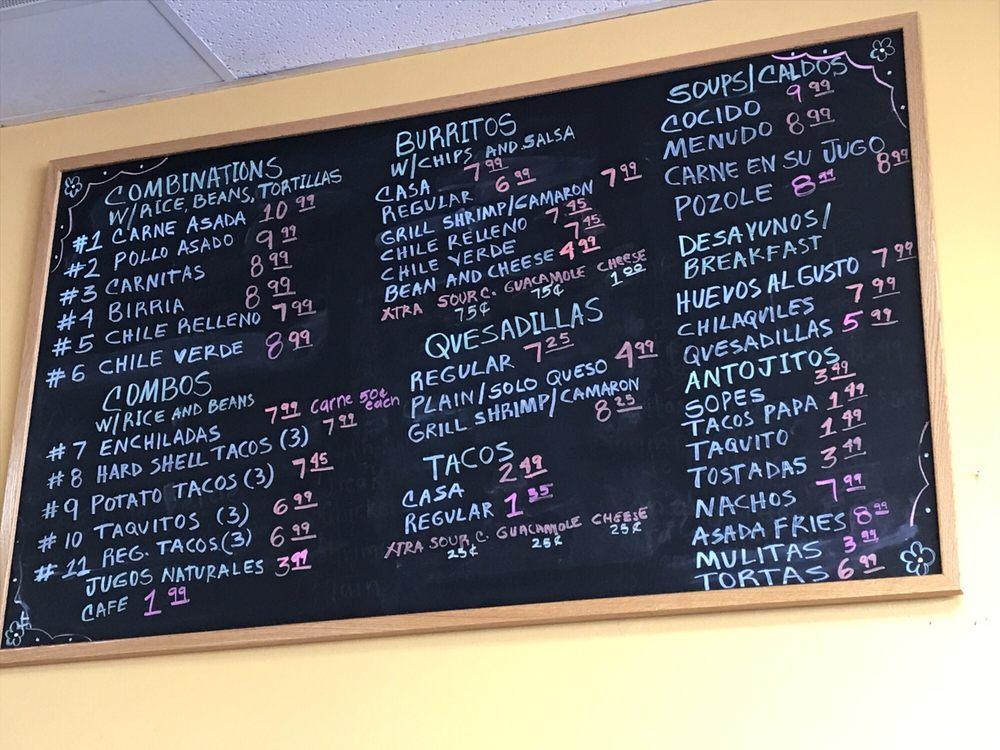 COMBINATIONS
W/RICE, BEANS, TORTILLAS
#1 CARNE ASADA 10 99
#2 POLLO ASADO 9 99
#3 CARNITAS 8 99
#4 BIRRIA 8 99
#5 CHILE RELLENO 7 99
#6 CHILE VERDE 8 99
COMBOS
W/RICE AND BEANS
#7 ENCHILADAS 7 99 Carne 50¢ each
#8 HARD SHELL TACOS (3) 7 99
#9 POTATO TACOS (3) 7 45
#10 TAQUITOS (3) 6 99
#11 REG. TACOS (3) 6 99
JUGOS NATURALES 3 99
CAFE 1 99
BURRITOS
W/CHIPS AND SALSA
CASA 7 99
REGULAR 6 99
GRILL SHRIMP/CAMARON 7 99
CHILE RELLENO 7 45
CHILE VERDE 7 45
BEAN AND CHEESE 4 99
XTRA SOUR C. GUACAMOLE CHEESE
75¢ 75¢ 1 00
QUESADILLAS
REGULAR 7 25
PLAIN/SOLO QUESO 4 99
GRILL SHRIMP/CAMARON
8 25
TACOS
CASA 2 49
REGULAR 1 35
XTRA SOUR C. GUACAMOLE CHEESE
25¢ 25¢ 25¢
SOUPS/CALDOS
COCIDO 9 99
MENUDO 8 99
CARNE EN SU JUGO 8 99
POZOLE 8 99
DESAYUNOS/
BREAKFAST
HUEVOS AL GUSTO 7 99
CHILAQUILES 7 99
QUESADILLAS 5 99
ANTOJITOS
SOPES 3 49
TACOS PAPA 1 49
TAQUITO 1 49
TOSTADAS 3 49
NACHOS 7 99
ASADA FRIES 8 99
MULITAS 3 99
TORTAS 6 99